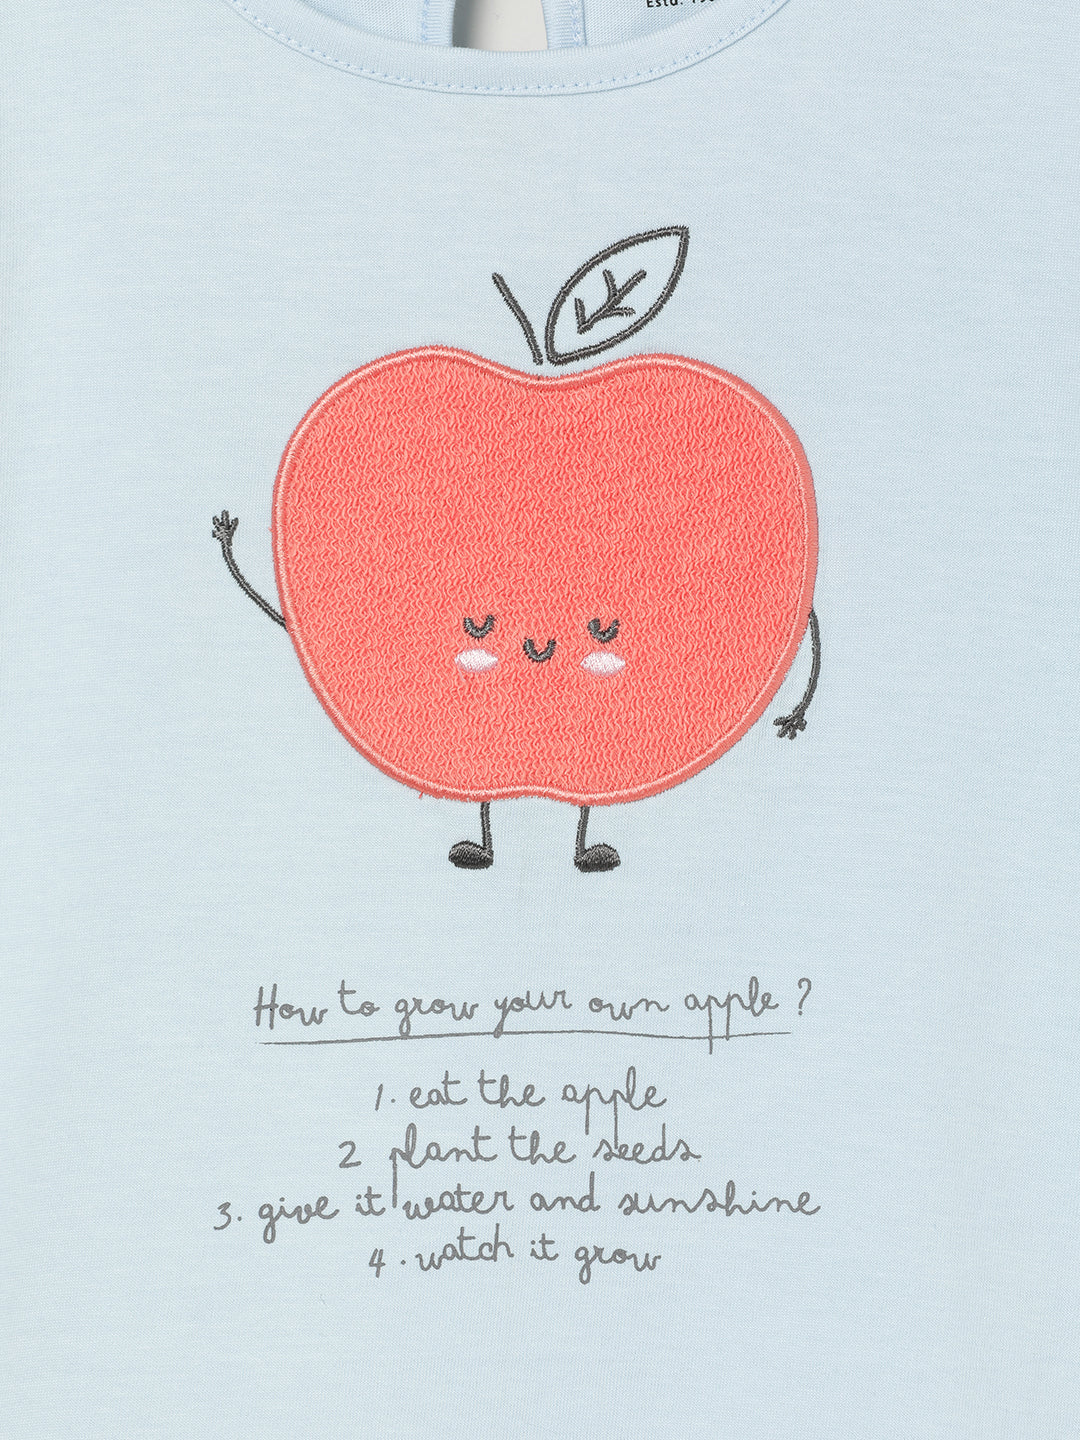 Estd.
How to grow your own apple ?
1. eat the apple
2 plant the seeds
3. give it water and sunshine
4. watch it grow